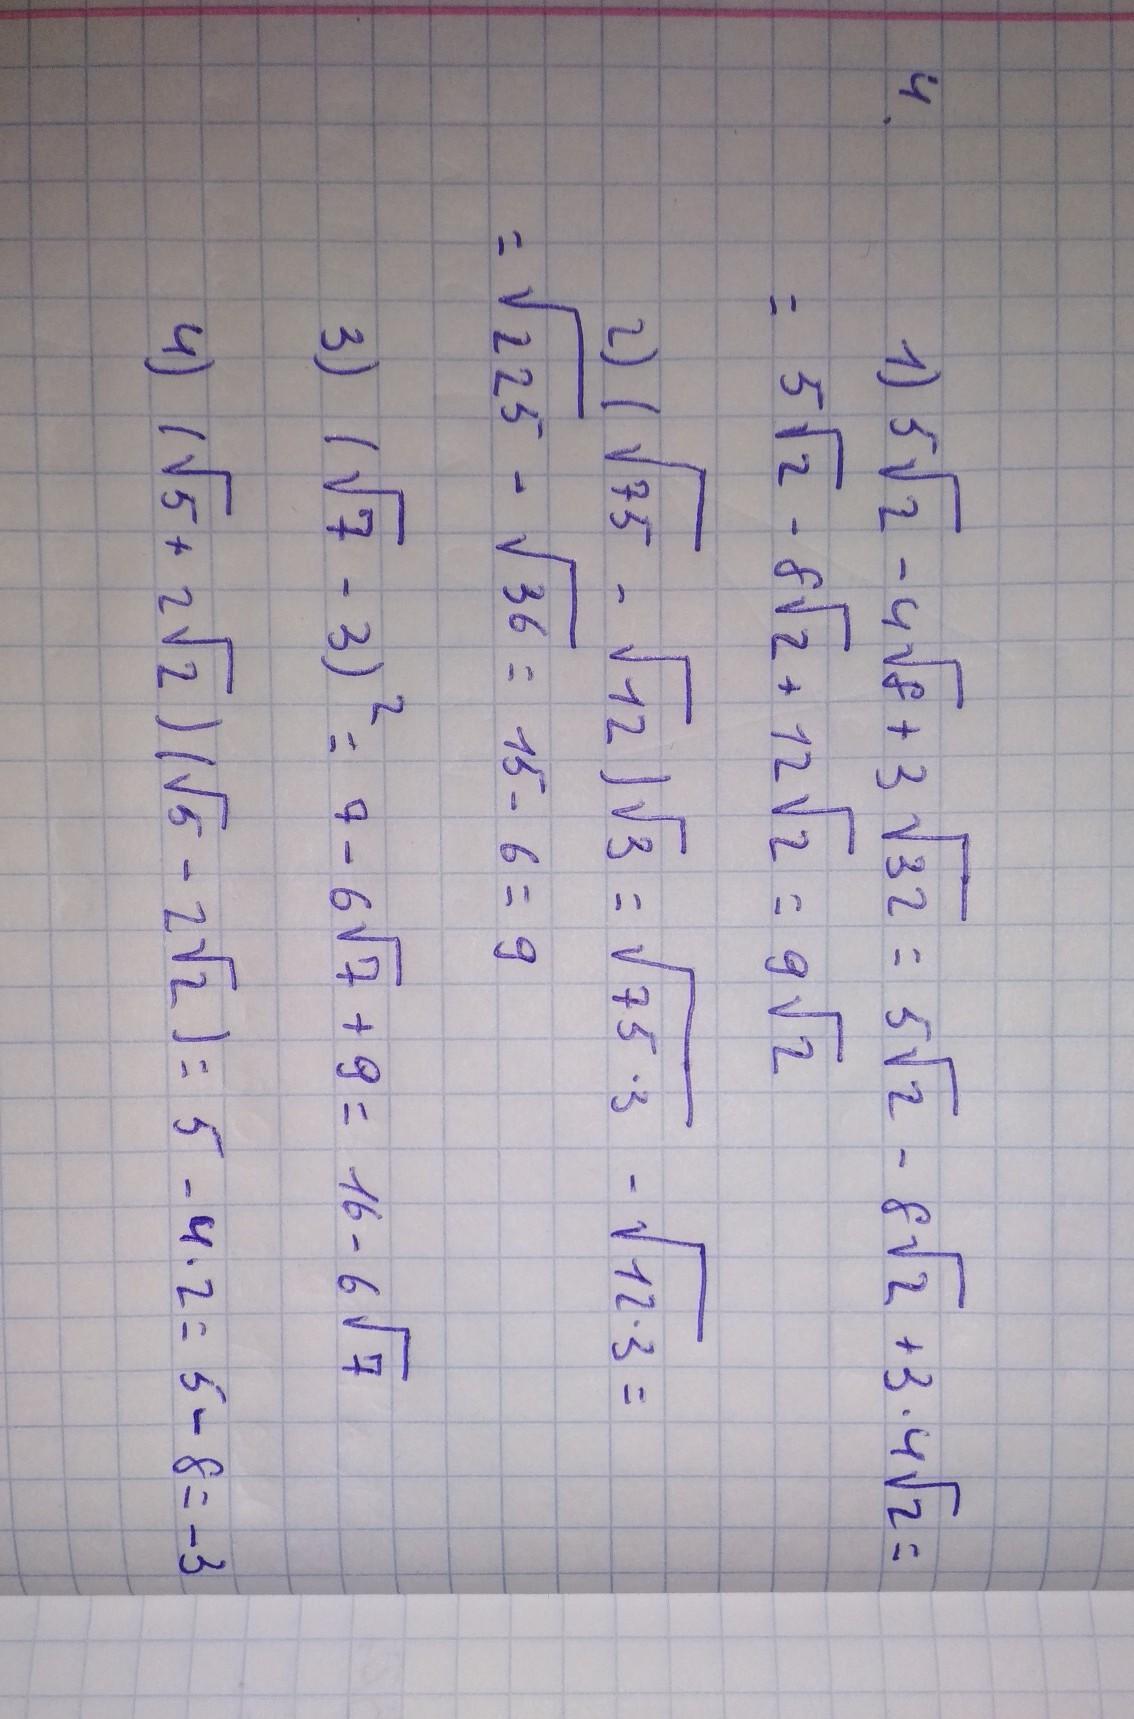 4.
1) 5√2 - 4√8 + 3√32 = 5√2 - 8√2 + 3·4√2 =
= 5√2 - 8√2 + 12√2 = 9√2
2) (√75 - √12)√3 = √75·3 - √12·3 =
= √225 - √36 = 15 - 6 = 9
3) (√7 - 3)² = 7 - 6√7 + 9 = 16 - 6√7
4) (√5 + 2√2)(√5 - 2√2) = 5 - 4·2 = 5 - 8 = -3